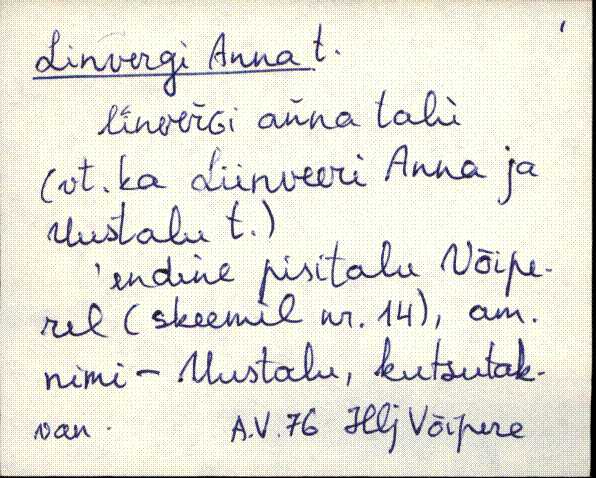 Linvergi Anna t.
linverGi anna talù
(vt. ka Liinveeri Anna ja
Uustalu t.)
'endine pisitalu Võipe-
rel (skeemil nr. 14), am.
nimi – Uustalu, kutsutak-
van.
A.V. 76 Hlj Võipere